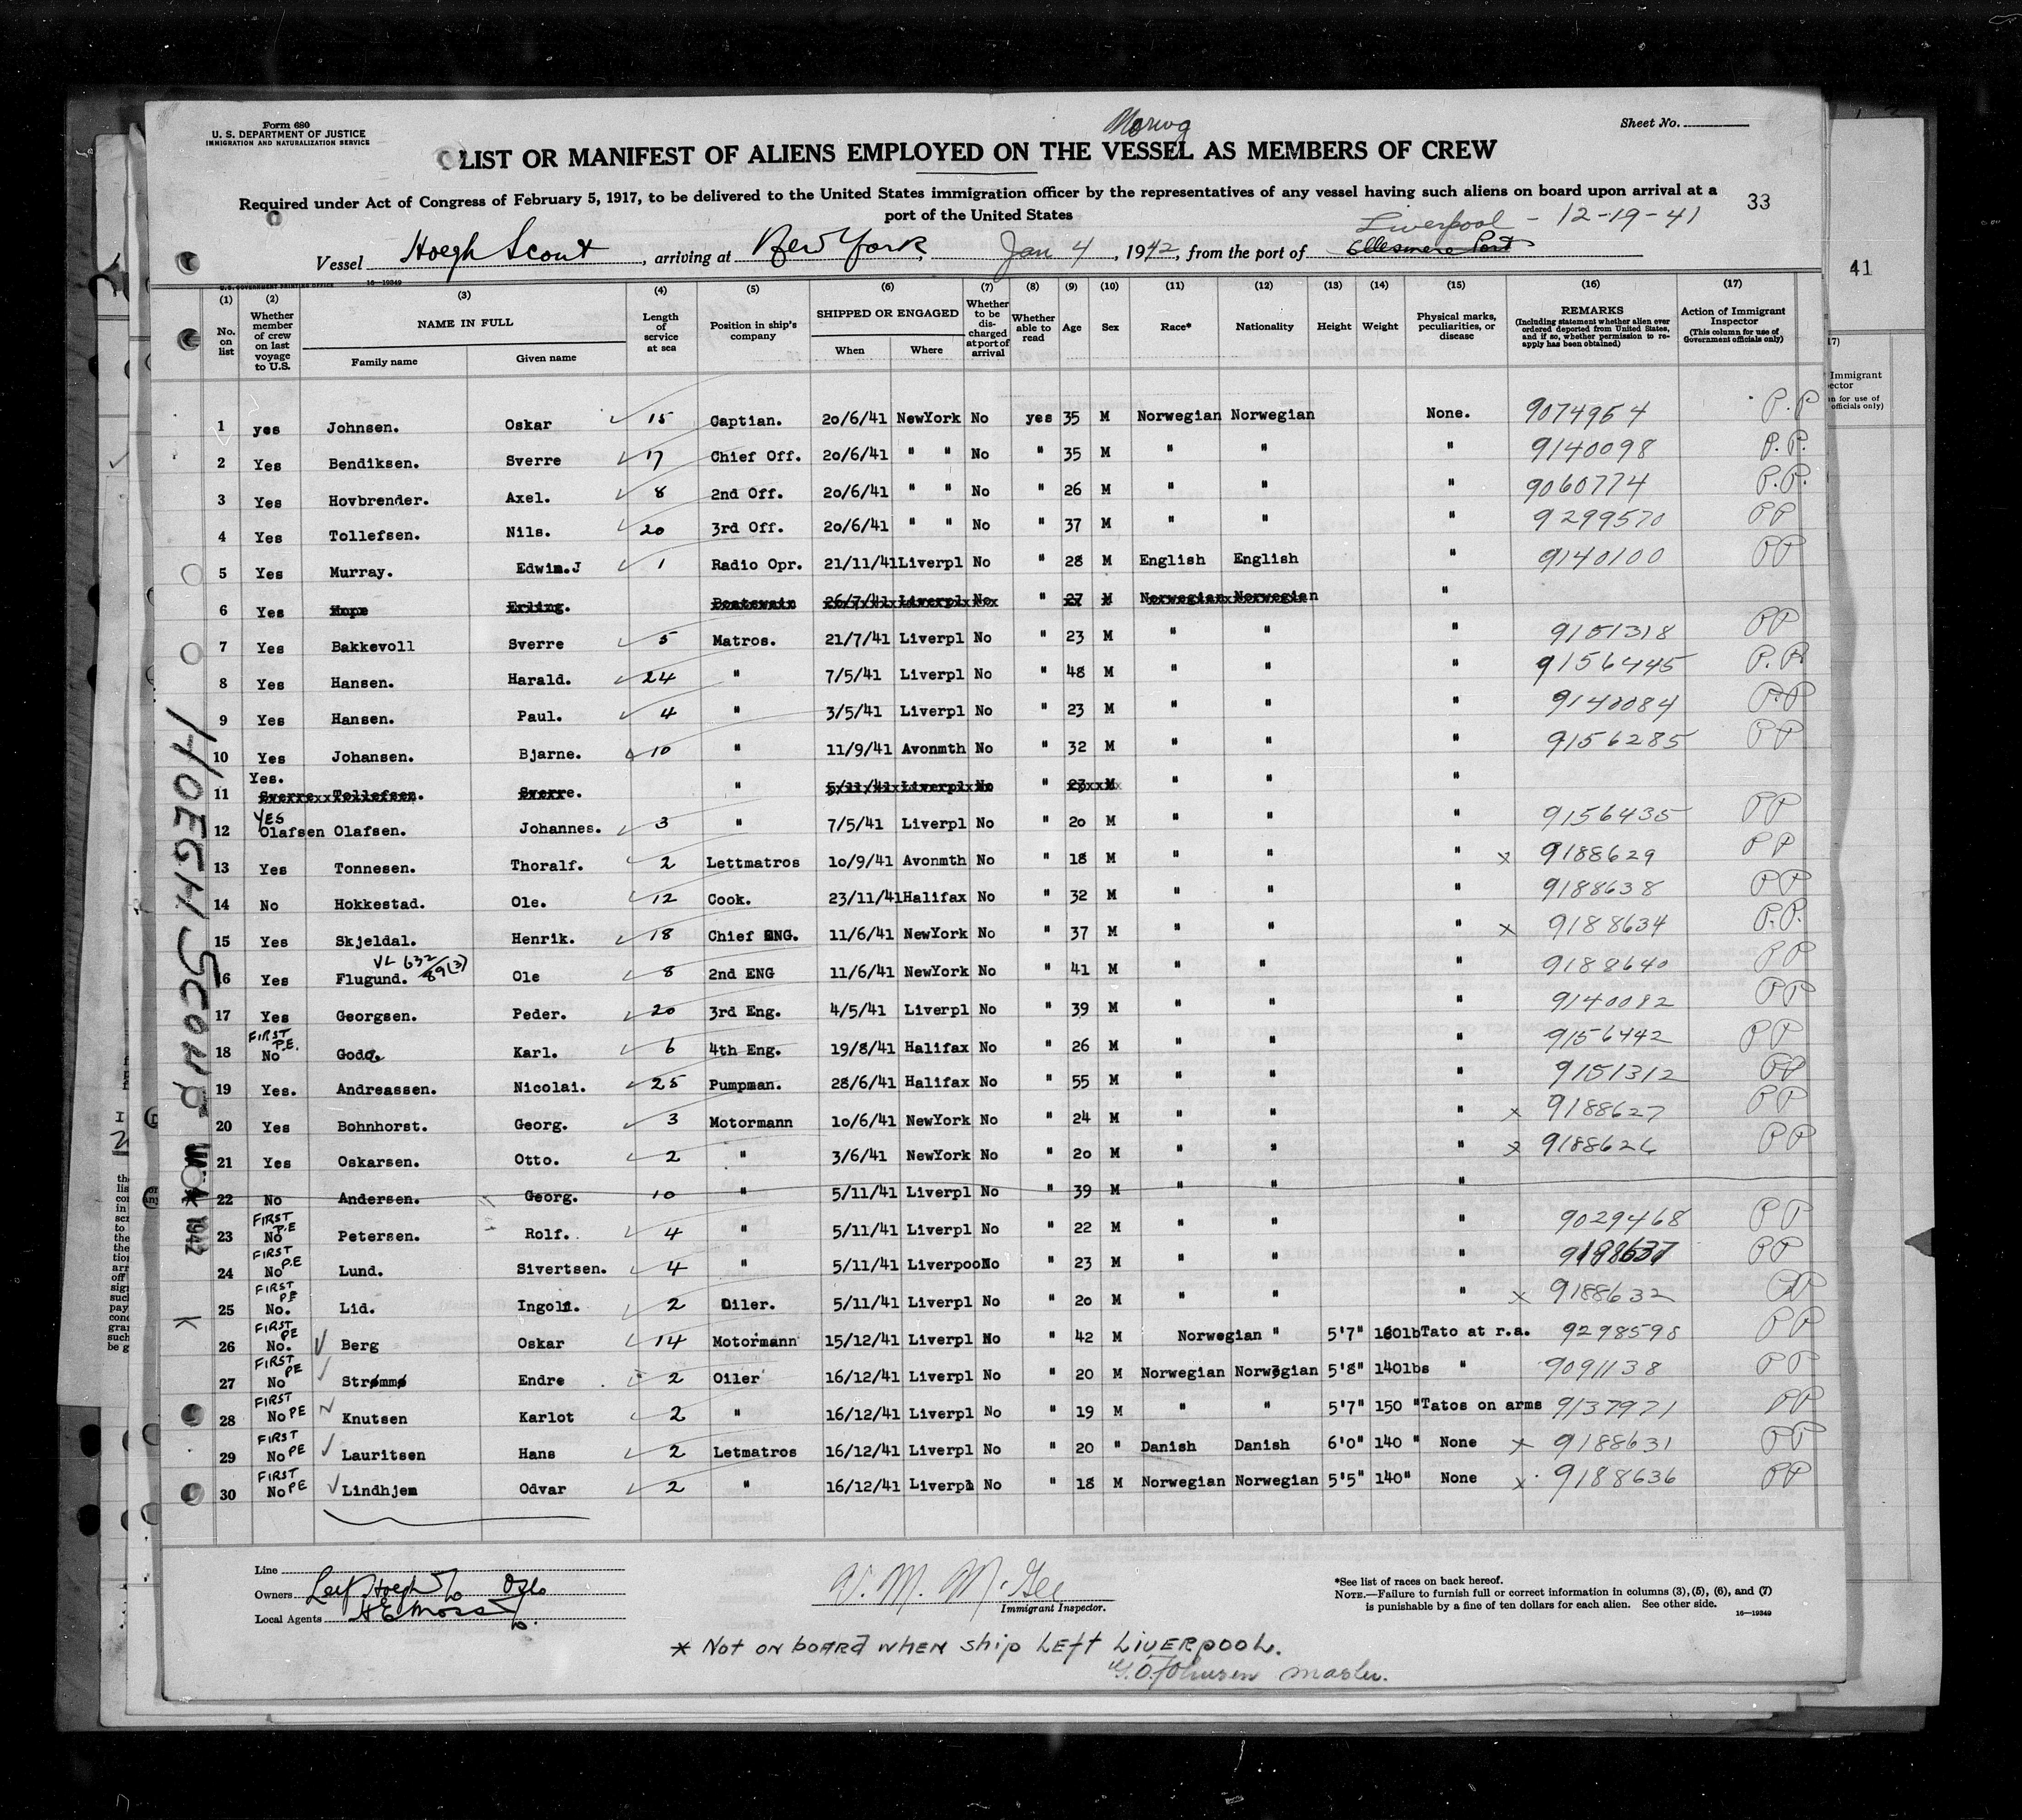 Form 680
U. S. DEPARTMENT OF JUSTICE
IMMIGRATION AND NATURALIZATION SERVICE
Sheet No.
Norwg
LIST OR MANIFEST OF ALIENS EMPLOYED ON THE VESSEL AS MEMBERS OF CREW
Required under Act of Congress of February 5, 1917, to be delivered to the United States immigration officer by the representatives of any vessel having such aliens on board upon arrival at a
port of the United States
33
Liverpool - 12-19-41
Vessel Hoegh Scout, arriving at New York, Jan 4, 1942, from the port of Ellesmere Port
41
U. S. GOVERNMENT PRINTING OFFICE 16-19349
(1) (2) (3) (4) (5) (6) (7) (8) (9) (10) (11) (12) (13) (14) (15) (16) (17)
No. on list
Whether member of crew on last voyage to U.S.
NAME IN FULL
Family name Given name
Length of service at sea
Position in ship's company
SHIPPED OR ENGAGED
When Where
Whether to be discharged at port of arrival
Whether able to read
Age
Sex
Race*
Nationality
Height
Weight
Physical marks, peculiarities, or disease
REMARKS
(Including statement whether alien ever ordered deported from United States, and if so, whether permission to reapply has been obtained)
Action of Immigrant Inspector
(This column for use of Government officials only)
1 yes Johnsen. Oskar 15 Captian. 20/6/41 NewYork No yes 35 M Norwegian Norwegian None. 9074954 P.P
2 Yes Bendiksen. Sverre 17 Chief Off. 20/6/41 " " No " 35 M " " " 9140098 P.P.
3 Yes Hovbrender. Axel. 8 2nd Off. 20/6/41 " " No " 26 M " " " 9060774 P.P.
4 Yes Tollefsen. Nils. 20 3rd Off. 20/6/41 " " No " 37 M " " " 9299570 PP
5 Yes Murray. Edwin.J 1 Radio Opr. 21/11/41 Liverpl No " 28 M English English " 9140100 PP
6 Yes Hope Erling. Boatswain 26/7/41 Liverpl No " 27 M Norwegian Norwegian "
7 Yes Bakkevoll Sverre 5 Matros. 21/7/41 Liverpl No " 23 M " " " 9151318 PP
8 Yes Hansen. Harald. 24 " 7/5/41 Liverpl No " 48 M " " " 9156445 P.P.
9 Yes Hansen. Paul. 4 " 3/5/41 Liverpl No " 23 M " " " 9140084 P.P
10 Yes Johansen. Bjarne. 10 " 11/9/41 Avonmth No " 32 M " " " 9156285 PP
Yes.
11 Sverre Tollefsen. Sverre. " 5/11/41 Liverpl No " 23 M " " "
YES
12 Olafsen Olafsen. Johannes. 3 " 7/5/41 Liverpl No " 20 M " " " 9156435 PP
13 Yes Tonnesen. Thoralf. 2 Lettmatros 10/9/41 Avonmth No " 18 M " " " x 9188629 PP
14 No Hokkestad. Ole. 12 Cook. 23/11/41 Halifax No " 32 M " " " 9188638 PP
15 Yes Skjeldal. Henrik. 18 Chief ENG. 11/6/41 NewYork No " 37 M " " " x 9188634 P.P.
VL 632/89(3)
16 Yes Flugund. Ole 8 2nd ENG 11/6/41 NewYork No " 41 M " " " 9188640 PP
17 Yes Georgsen. Peder. 20 3rd Eng. 4/5/41 Liverpl No " 39 M " " " 9140082 PP
FIRST P.E.
18 No Godø Karl. 6 4th Eng. 19/8/41 Halifax No " 26 M " " " 9156442 PP
19 Yes. Andreassen. Nicolai. 25 Pumpman. 28/6/41 Halifax No " 55 M " " " 9151312 PP
20 Yes Bohnhorst. Georg. 3 Motormann 10/6/41 NewYork No " 24 M " " " x 9188627 PP
21 Yes Oskarsen. Otto. 2 " 3/6/41 NewYork No " 20 M " " " x 9188626 PP
22 No Andersen. Georg. 10 " 5/11/41 Liverpl No " 39 M "
FIRST P.E
23 No Petersen. Rolf. 4 " 5/11/41 Liverpl No " 22 M " " " 9029468 PP
FIRST P.E
24 No Lund. Sivertsen. 4 " 5/11/41 Liverpool No " 23 M " " " 9188637 PP
FIRST PE
25 No. Lid. Ingolf. 2 Oiler. 5/11/41 Liverpl No " 20 M " " " x 9188632 PP
FIRST PE
26 No. Berg Oskar 14 Motormann 15/12/41 Liverpl No " 42 M Norwegian " 5'7" 160lb Tato at r.a. 9298598 PP
FIRST PE
27 No Strømmø Endre 2 Oiler 16/12/41 Liverpl No " 20 M Norwegian Norwegian 5'8" 140lbs " 9091138 PP
FIRST
28 No PE Knutsen Karlot 2 " 16/12/41 Liverpl No " 19 M " " 5'7" 150 " Tatos on arms 9137971 PP
FIRST
29 No PE Lauritsen Hans 2 Letmatros 16/12/41 Liverpl No " 20 " Danish Danish 6'0" 140 " None x 9188631 PP
FIRST
30 No PE Lindhjem Odvar 2 " 16/12/41 Liverpl No " 18 M Norwegian Norwegian 5'5" 140" None x 9188636 PP
HOEGH SCOUT
1942
K
Line
Owners Leif Hoegh & Co Oslo
Local Agents H E Moss & Co.
V. M. McGee
Immigrant Inspector.
*See list of races on back hereof.
NOTE.—Failure to furnish full or correct information in columns (3), (5), (6), and (7)
is punishable by a fine of ten dollars for each alien. See other side.
16—19349
* Not on board when ship left LiVERPOOL.
O. Johnsen master.